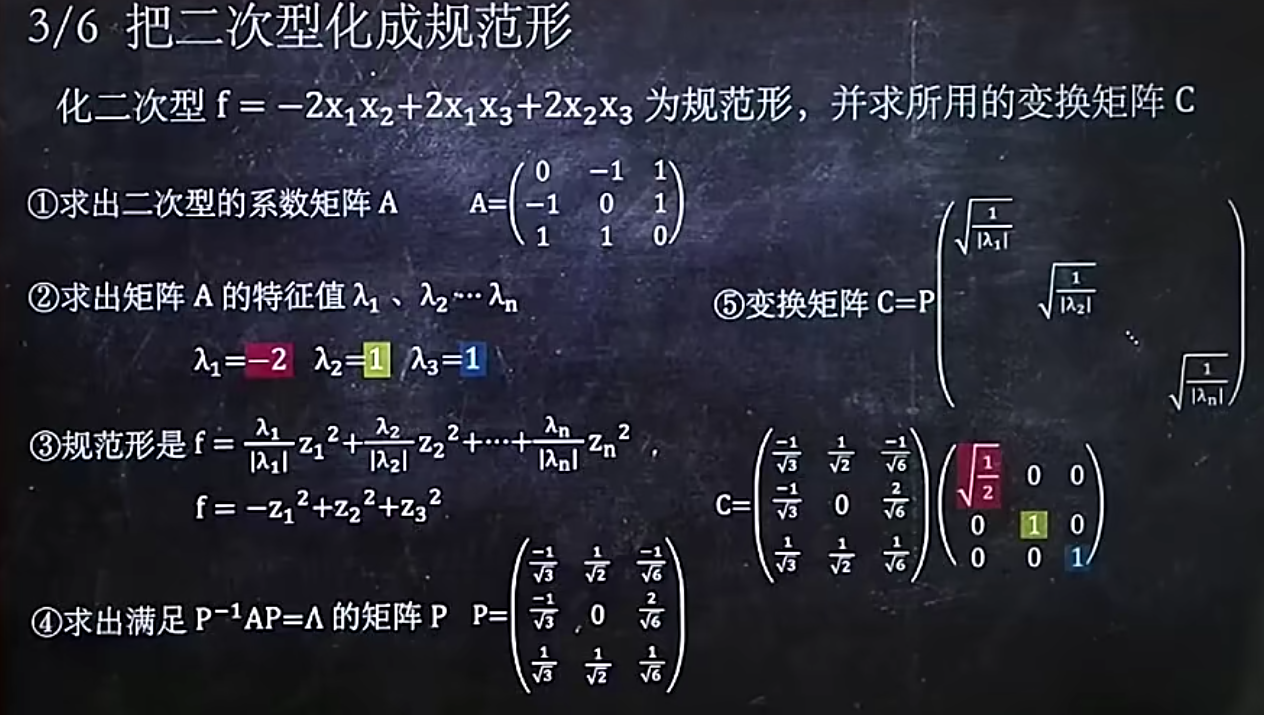 3/6 把二次型化成规范形
化二次型 f = −2x₁x₂+2x₁x₃+2x₂x₃ 为规范形，并求所用的变换矩阵 C
①求出二次型的系数矩阵 A A=
0 −1 1
−1 0 1
1 1 0
②求出矩阵 A 的特征值 λ₁ 、λ₂⋯ λₙ
λ₁=−2 λ₂=1 λ₃=1
③规范形是 f = λ₁/|λ₁| z₁²+λ₂/|λ₂| z₂²+⋯+λₙ/|λₙ| zₙ² ，
f = −z₁²+z₂²+z₃²
④求出满足 P⁻¹AP=Λ 的矩阵 P P=
−1/√3 1/√2 −1/√6
−1/√3 0 2/√6
1/√3 1/√2 1/√6
⑤变换矩阵 C=P
√(1/|λ₁|)
√(1/|λ₂|)
⋱
√(1/|λₙ|)
C=
−1/√3 1/√2 −1/√6
−1/√3 0 2/√6
1/√3 1/√2 1/√6
√(1/2) 0 0
0 1 0
0 0 1